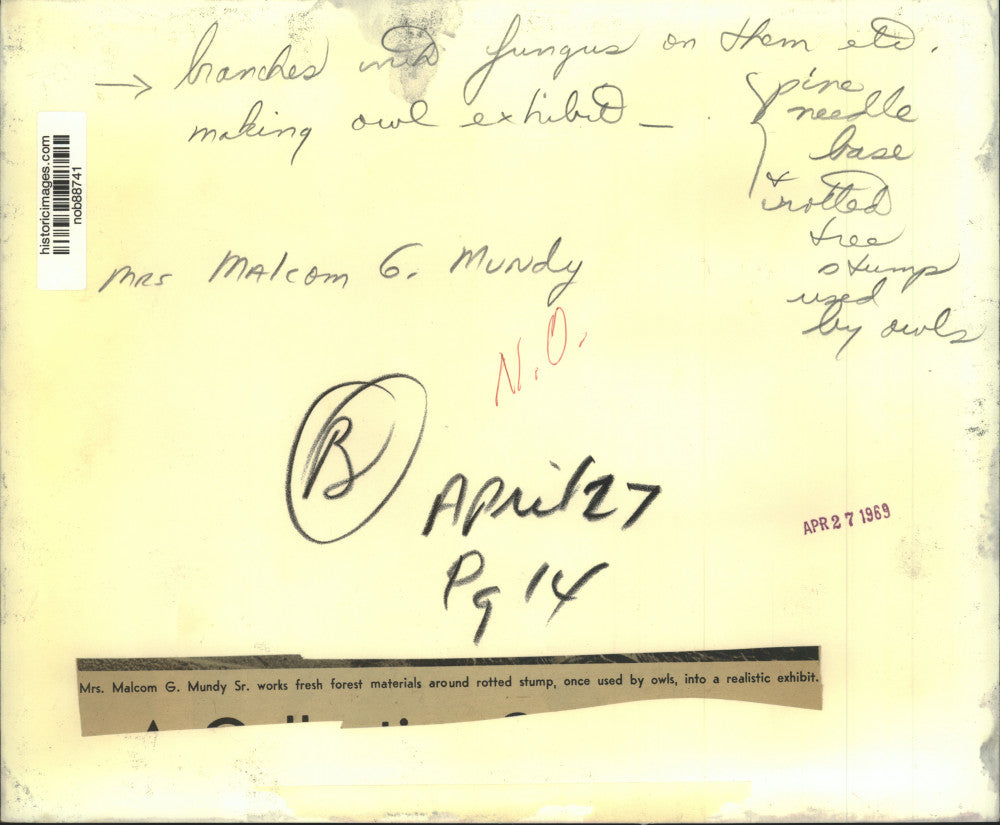 → branches with fungus on them etc.
making owl exhibit —
pine
needle
base
& rotted
tree
stump
used
by owls
historicimages.com
nob88741
Mrs Malcom G. Mundy
N.O.
B
April 27
Pg 14
APR 27 1969
Mrs. Malcom G. Mundy Sr. works fresh forest materials around rotted stump, once used by owls, into a realistic exhibit.